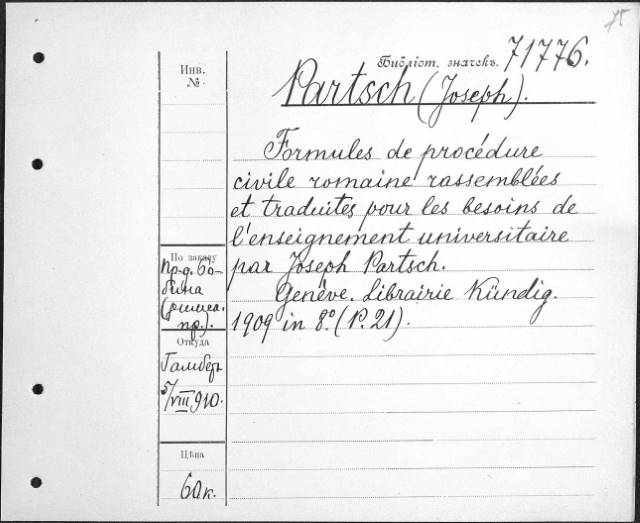 75
Библіот. значекъ. 71776.
Инв.
№
Partsch (Joseph).
Formules de procédure
civile romaine rassemblées
et traduites pour les besoins de
l'enseignement universitaire
par Joseph Partsch.
Genève. Librairie Kündig.
1909 in 8.° (P. 21).
По заказу
пр-д.
(римск.
пр.).
Откуда
Гамберъ
5/VIII 910.
Цѣна
60 к.